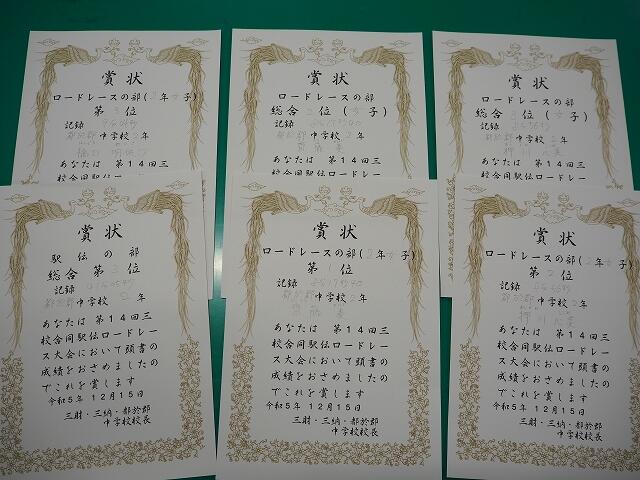 賞状
ロードレースの部(年子)
第位
記録
中学校2年
あなたは 第14回三
校合同駅伝ロードレー
賞状
ロードレースの部
総合位(子)
記録
中学校2年
あなたは 第14回三
校合同駅伝ロードレー
賞状
ロードレースの部
総合位(子)
記録
中学校年
あなたは 第14回三
校合同駅伝ロードレー
賞状
駅伝の部
総合 第3位
記録
都於郡中学校2年
あなたは 第14回三
校合同駅伝ロードレー
ス大会において頭書の
成績をおさめましたの
でこれを賞します
令和5年 12月15日
三財・三納・都於郡
中学校校長
賞状
ロードレースの部(2年女子)
第1位
記録
都於郡中学校2年
あなたは 第14回三
校合同駅伝ロードレー
ス大会において頭書の
成績をおさめましたの
でこれを賞します
令和5年 12月15日
三財・三納・都於郡
中学校校長
賞状
ロードレースの部(2年女子)
第2位
記録
都於郡中学校2年
あなたは 第14回三
校合同駅伝ロードレー
ス大会において頭書の
成績をおさめましたの
でこれを賞します
令和5年 12月15日
三財・三納・都於郡
中学校校長